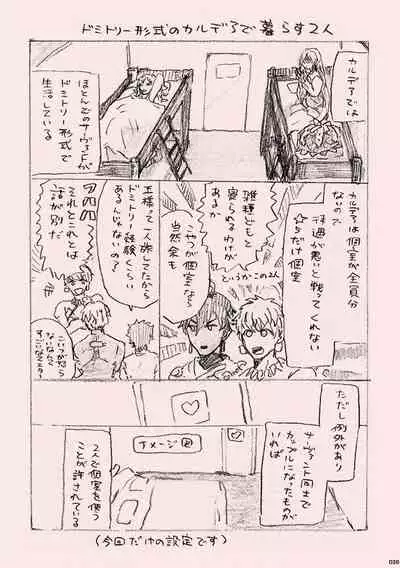 ドミトリー形式のカルデアで暮らす2人
カルデアでは
ほとんどのサーヴァントが
ドミトリー形式で
生活している
カルデアは個室が全員分
ないので
待遇が悪いと戦ってくれない
☆5だけ個室
というかこの2人
雑種どもと
寝られるわけが
あるか
こやつが個室なら
当然余も
王様って一人旅してたから
ドミトリー経験くらい
あるんじゃないの?
それとこれとは
話が別だ
ただし例外があり
サーヴァント同士で
カップルになったものが
いれば
イメージ図
2人で個室を使う
ことが許されている
(今回だけの設定です)
039